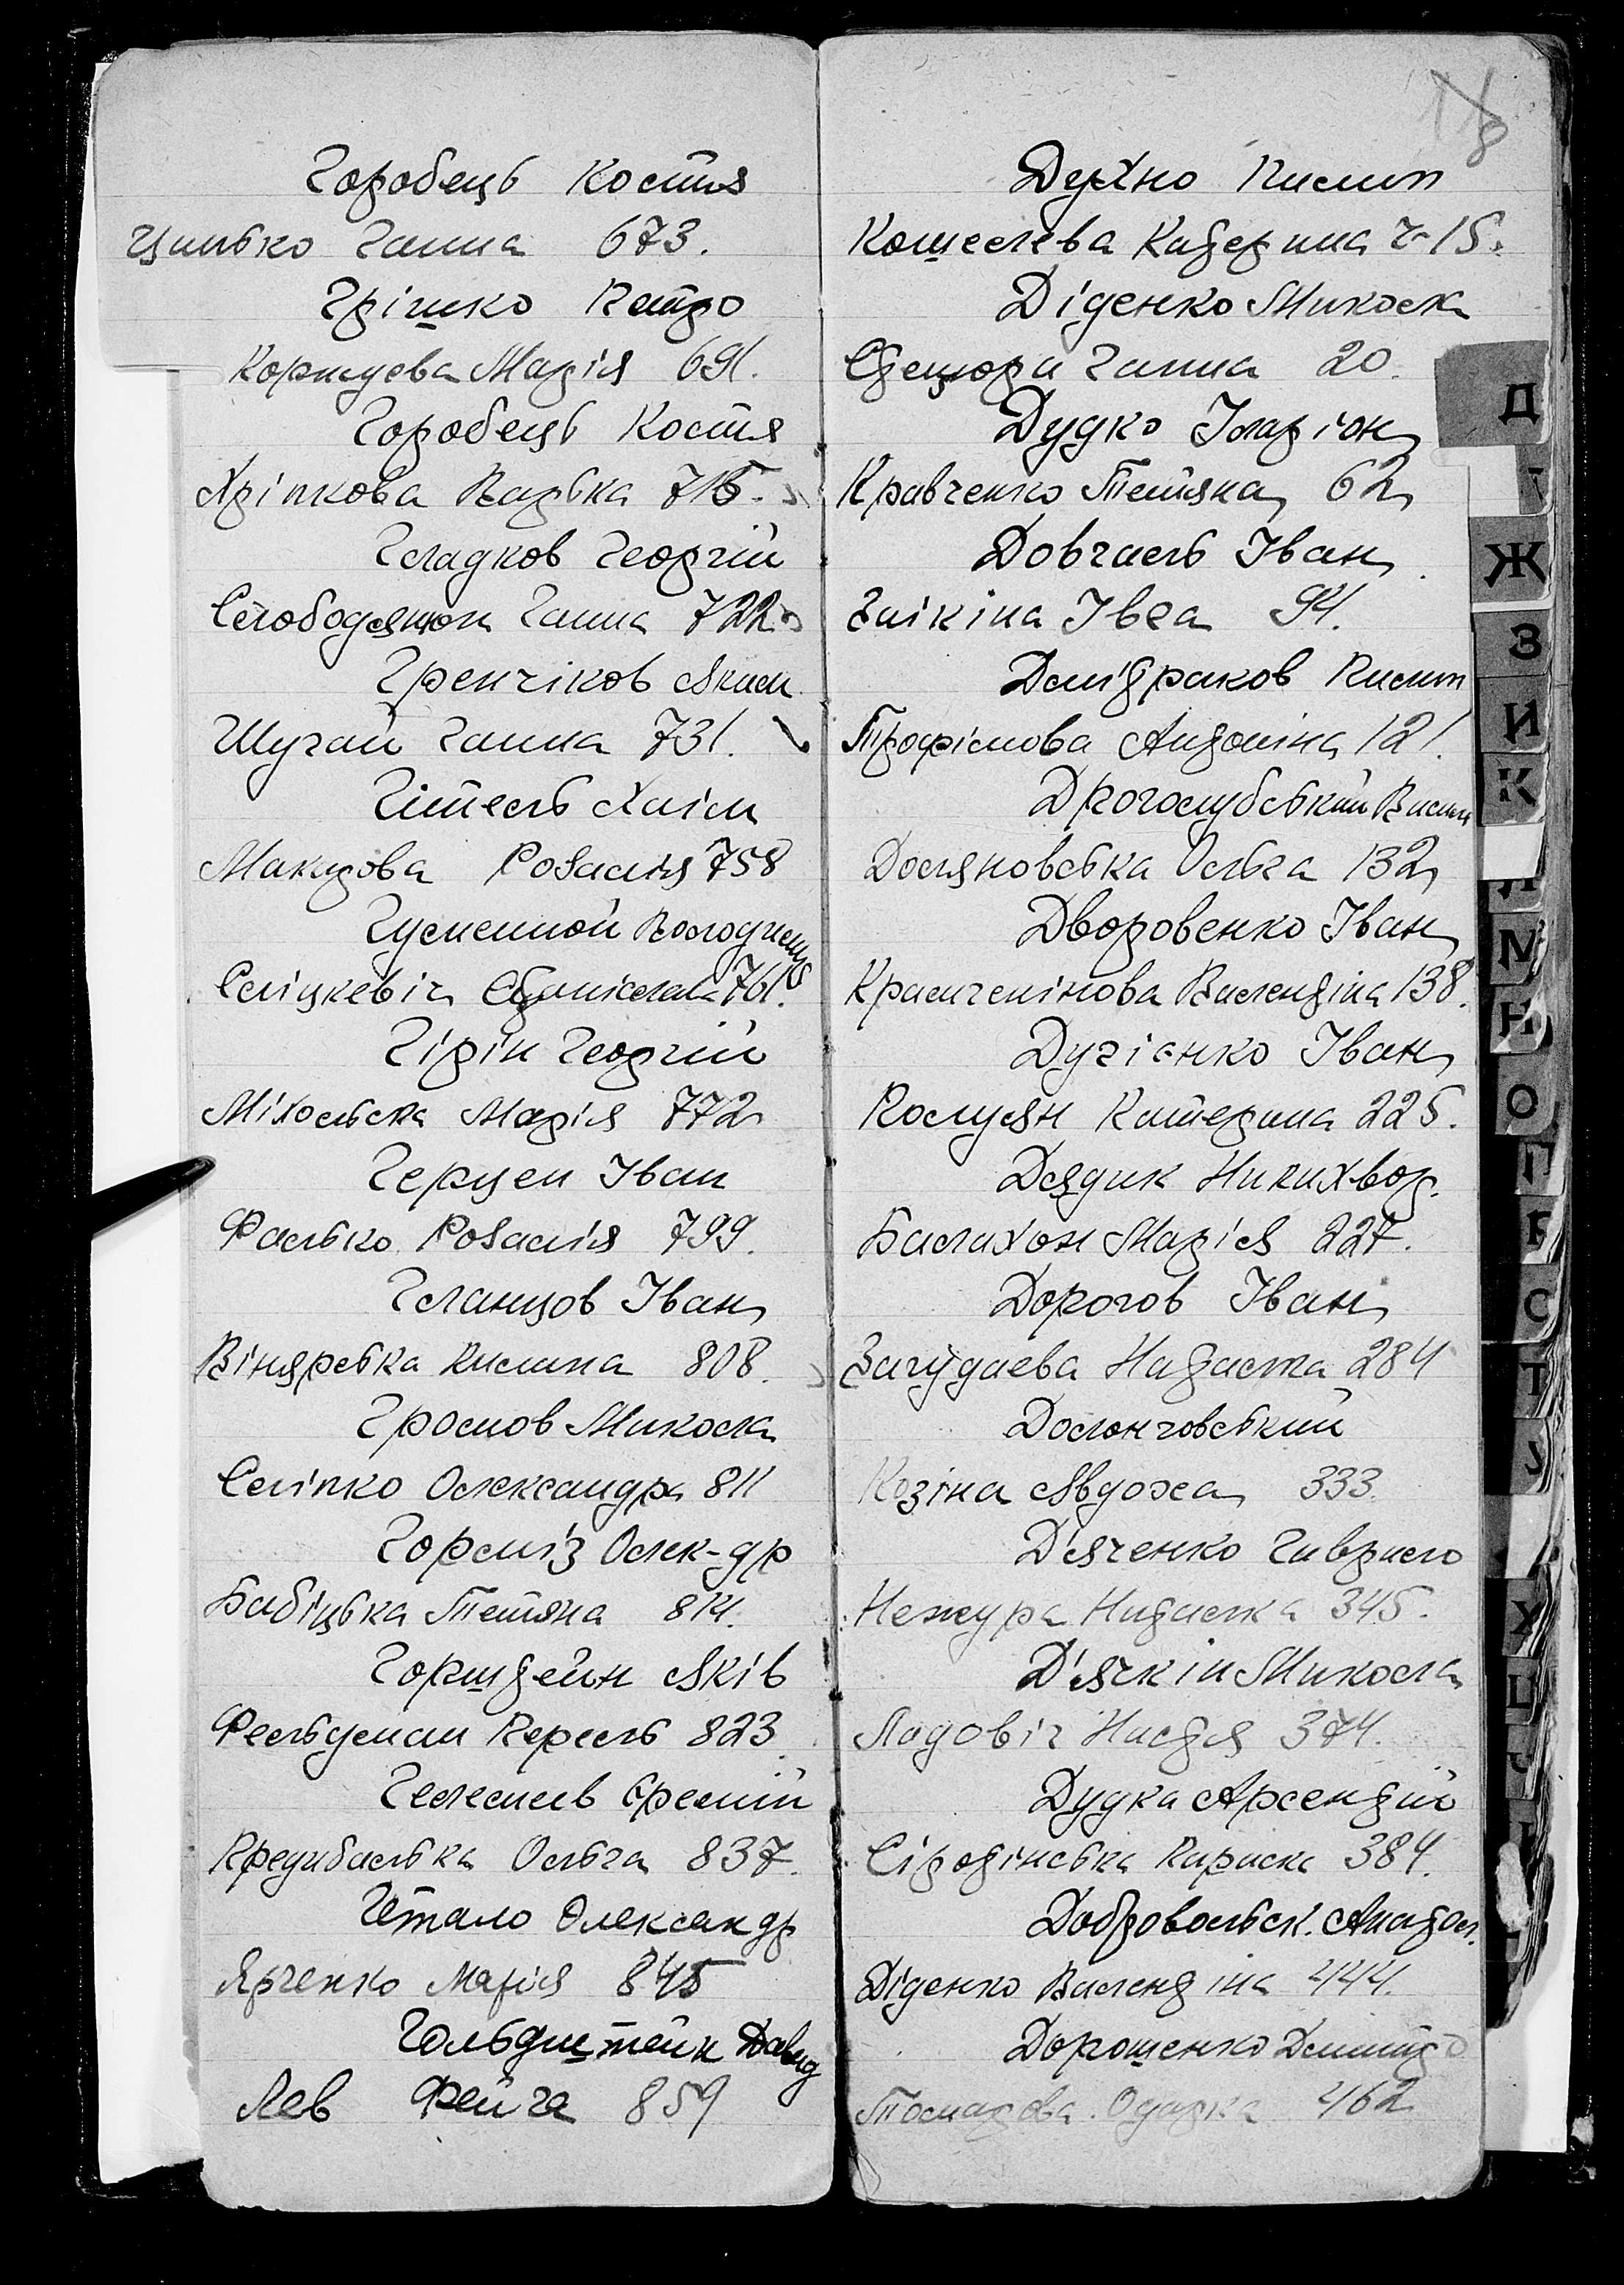 Горобець Костя
Цимбко Ганна 673.
Грішко Петро
Коржуєва Марія 691.
Горобець Костя
Хріпкова Варька 715.
Гладков Георгій
Слободянюк Ганна 722
Гренчіков Яким
Шугай Ганна 731.
Гітель Хаім
Макарова Розалія 758
Гуменной Володимир
Саліцкевіч Станіслава 761.
Гірін Георгій
Міхольска Марія 772
Герцен Іван
Фалько Розалія 799.
Гланцов Іван
Вінярська Килина 808.
Громов Микола
Сліпко Олександра 811
Гормїз Олек-др
Бабіцька Тетяна 814.
Горштейн Яків
Фельдман Перель 823.
Гелемеїв Єремій
Предибалька Ольга 837.
Гетало Олександр
Ярченко Марія 845
Гольдштейн Давид
Лев Фейга 859
Духно Пилип
Кошелева Катерина Г-15.
Діденко Микола
Стецюра Ганна 20.
Дудко Іларіон
Кравченко Тетяна 62
Довгаль Іван
Знікіна Івга 94.
Дмітраков Пилип
Трофімова Антоніна 121.
Дроголубський Васил
Доляновська Ольга 132
Дворовенко Іван
Крамченінова Валентіна 138.
Дугіенко Іван
Колуян Катерина 225.
Дядик Никихвор.
Балихон Марія 227.
Дорогов Іван
Загудаєва Наталка 284
Долонговський
Козіна Явдоха 333.
Д'яченко Гаврило
Нежура Наталка 345.
Д'ячкін Микола
Ладовіч Настя 374.
Дудка Арсентій
Сіротінська Параска 384.
Добровольск. Анатол.
Діденко Валентіна 444.
Дорошенко Дмитро
Томарова Одарка 462
Д
Ж
З
И
К
Л
М
Н
О
П
Р
С
Т
У
Х
Ц